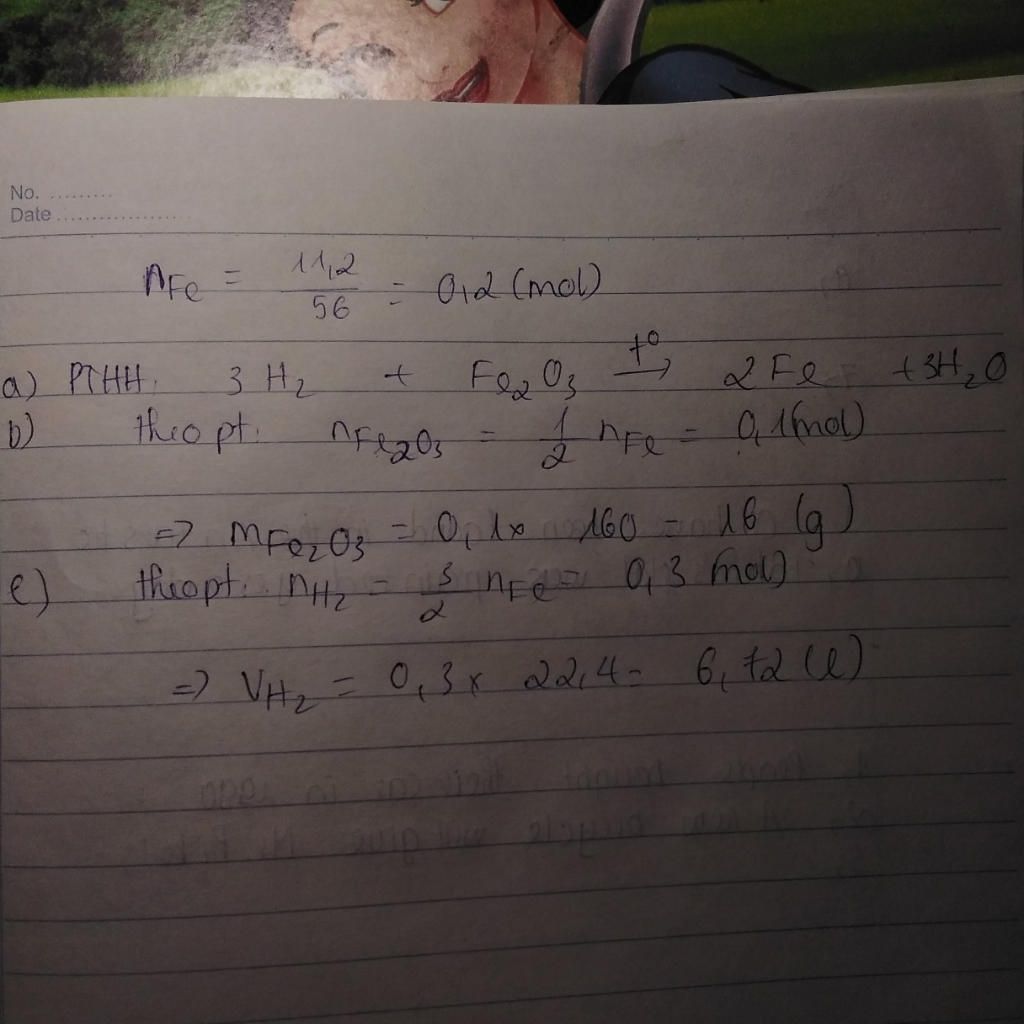 No. .........
Date ...................
nFe = 11,2/56 = 0,2 (mol)
a) PTHH: 3 H2 + Fe2O3 t° → 2 Fe + 3H2O
b) theo pt: nFe2O3 = 1/2 nFe = 0,1(mol)
=> mFe2O3 = 0,1 x 160 = 16 (g)
c) theo pt: nH2 = 3/2 nFe = 0,3 (mol)
=> VH2 = 0,3 x 22,4 = 6,72 (l)